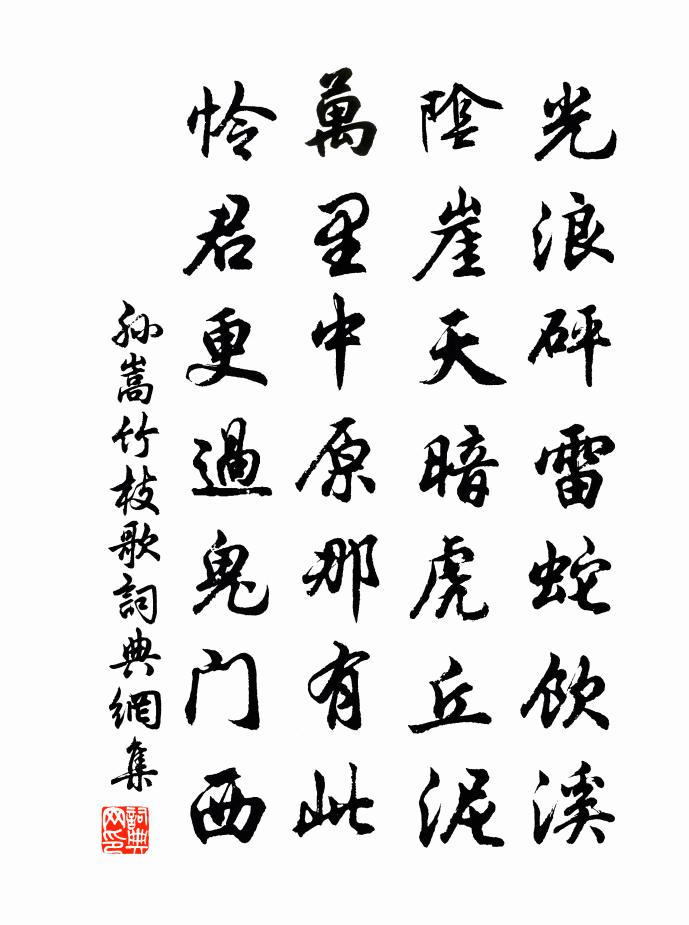 光浪砰雷蛇飲溪
陰崖天暗虎丘泥
萬里中原那有此
怜君更過鬼门西
孙嵩竹枝歌詞典網集
詞典网印